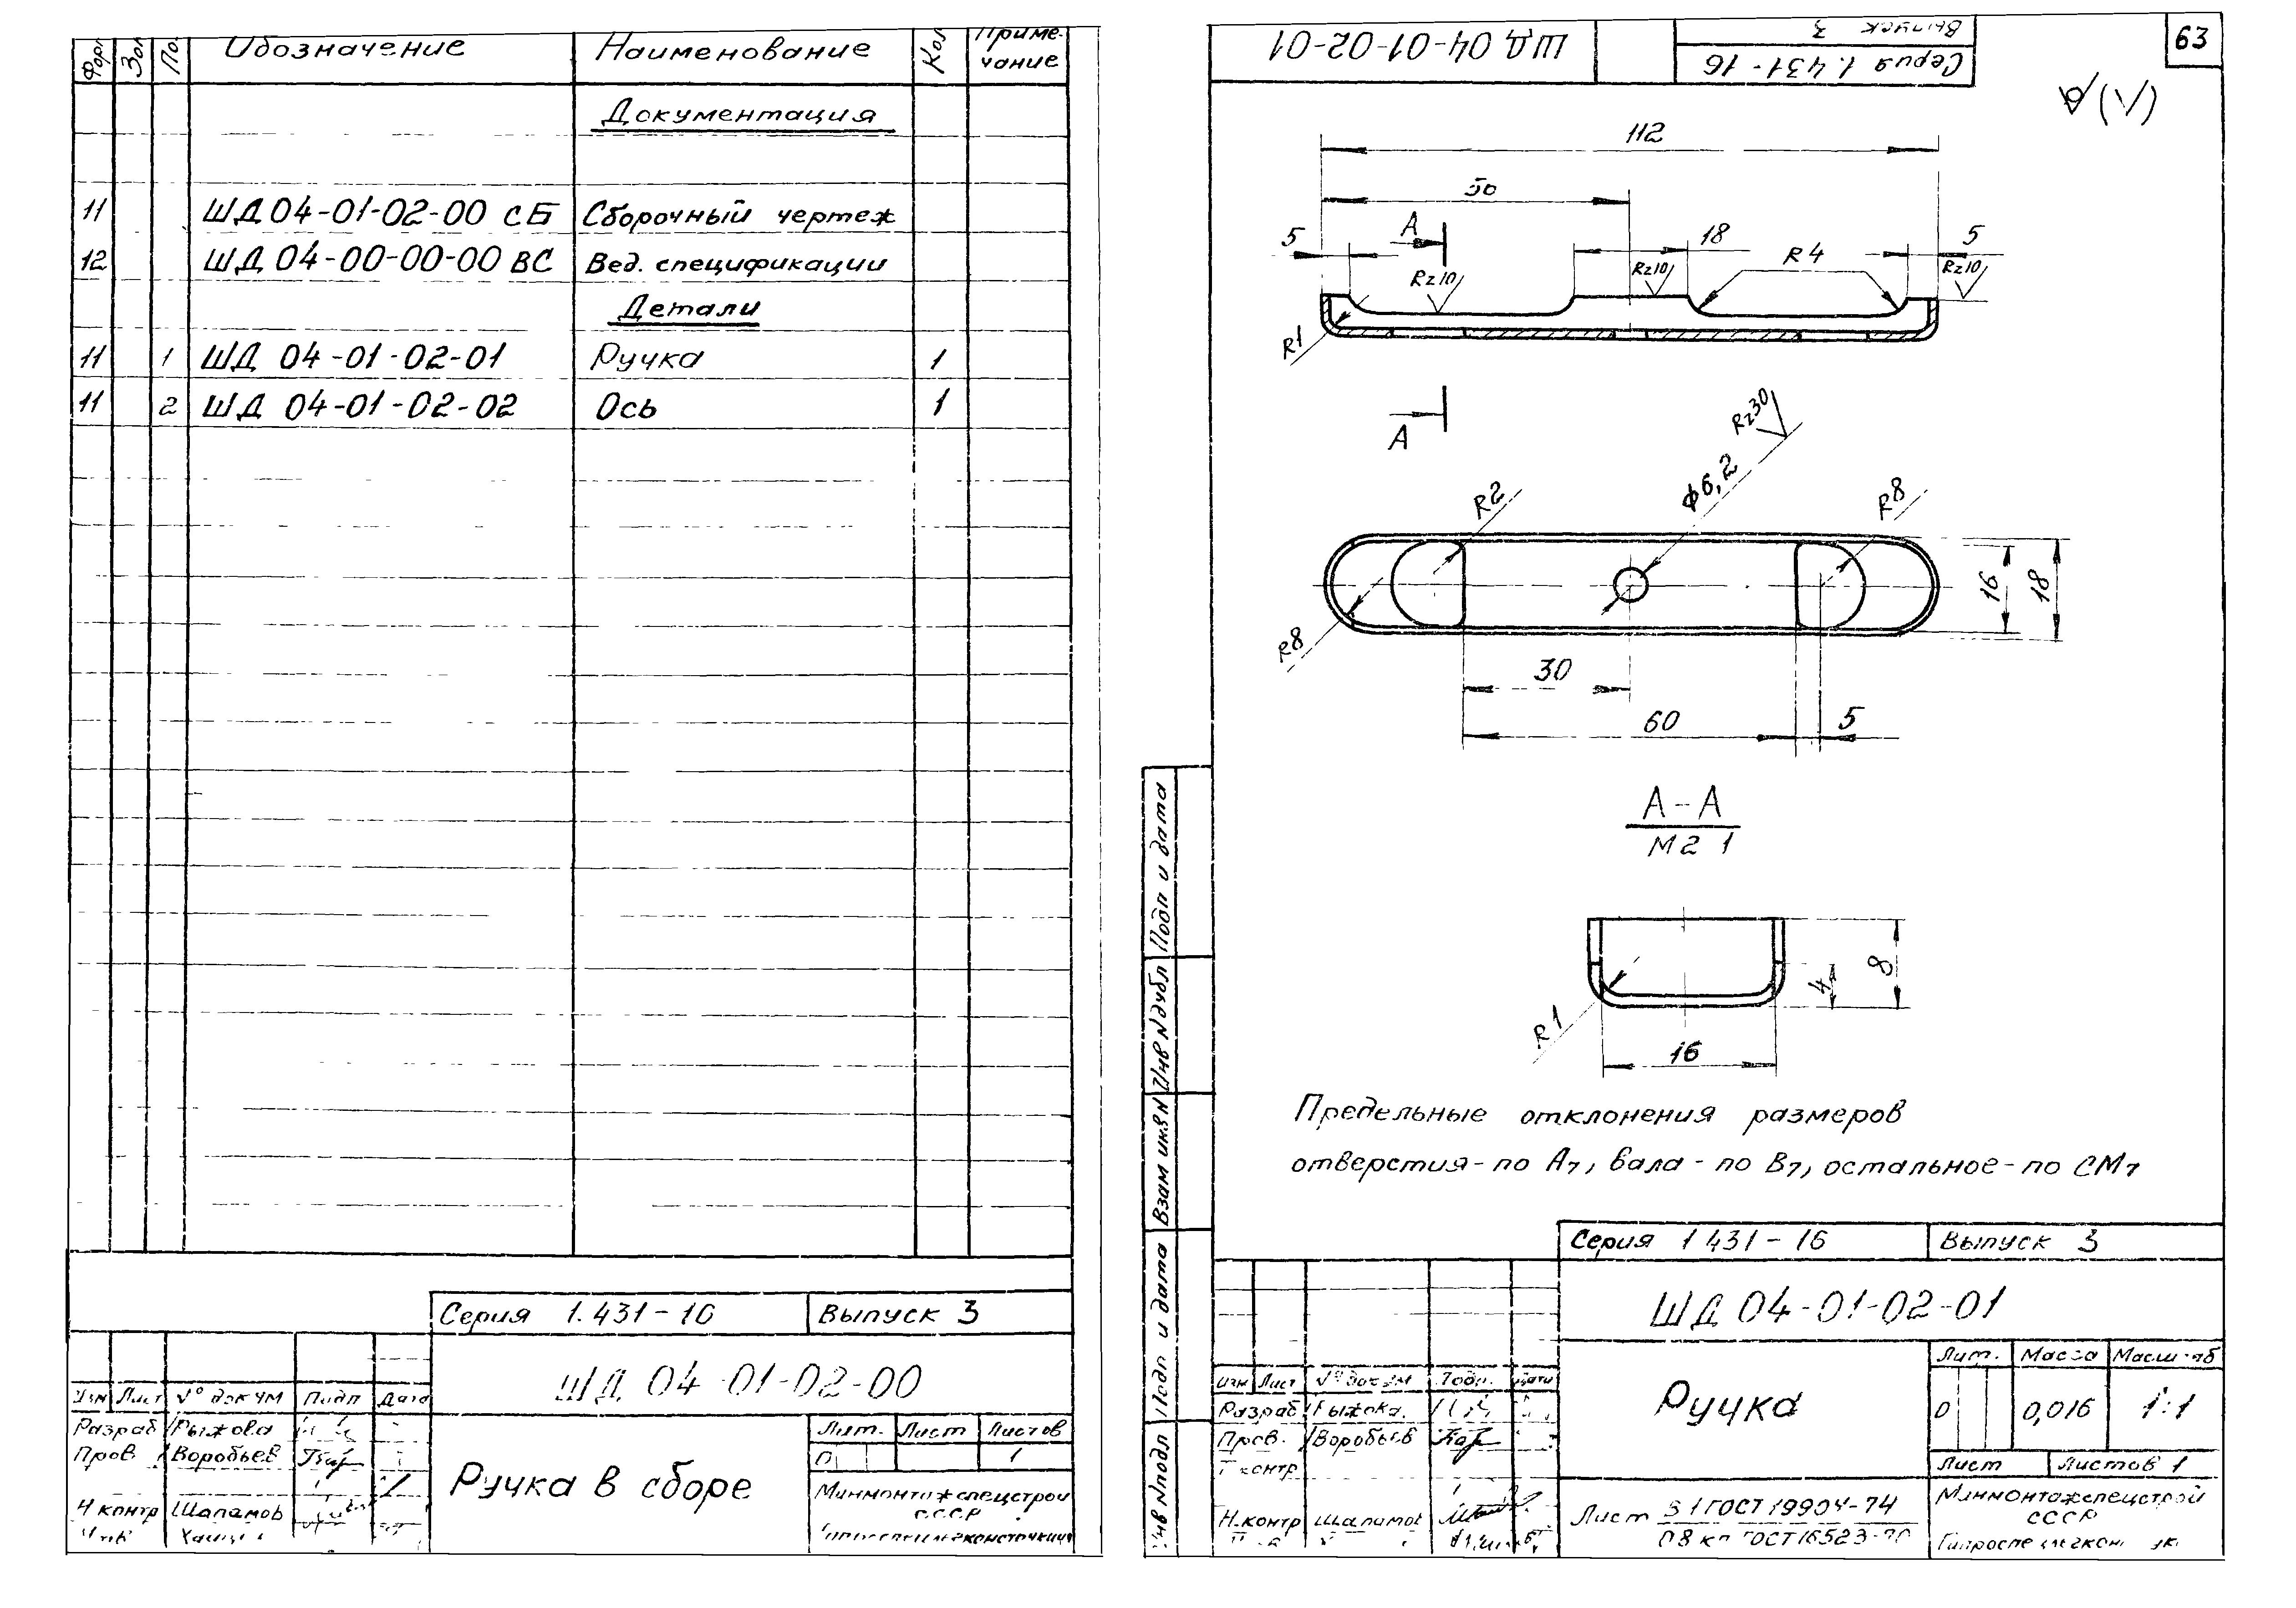 Обозначение Наименование Кол Приме-
чание
Документация
11 ШД 04-01-02-00 СБ Сборочный чертеж
12 ШД 04-00-00-00 ВС Вед. спецификации
Детали
11 1 ШД 04-01-02-01 Ручка 1
11 2 ШД 04-01-02-02 Ось 1
Серия 1.431-16 Выпуск 3
ШД 04-01-02-00
Изм Лист № докум Подп Дата
Разраб Рыжова
Пров Воробьев
Н контр Шаламов
Ручка в сборе
Лит. Лист Листов
1
Минмонтажспецстрой
СССР
ШД 04-01-02-01
Серия 1.431-16
Выпуск 3
63
112
50
5 А 18 R4 5
Rz10 Rz10 Rz10
R1
А
Rz30
R2 ϕ6,2 R8
16 18
R8
30
60 5
А-А
М2 1
8
4
R1
16
Предельные отклонения размеров
отверстия - по А7, вала - по В7, остальное - по СМ7
Подп и дата
Инв №дубл
Взам инв №
Подп и дата
Инв №подл
Серия 1 431-16 Выпуск 3
ШД 04-01-02-01
Изм Лист № докум Подп. Дата
Разраб
Пров. Воробьев
Т контр
Н.контр Шаламов
Ручка
Лит. Масса Масштаб
0,016 1:1
Лист Листов 1
Лист 1 ГОСТ 19904-74
08 кп ГОСТ 16523-70
Минмонтажспецстрой
СССР